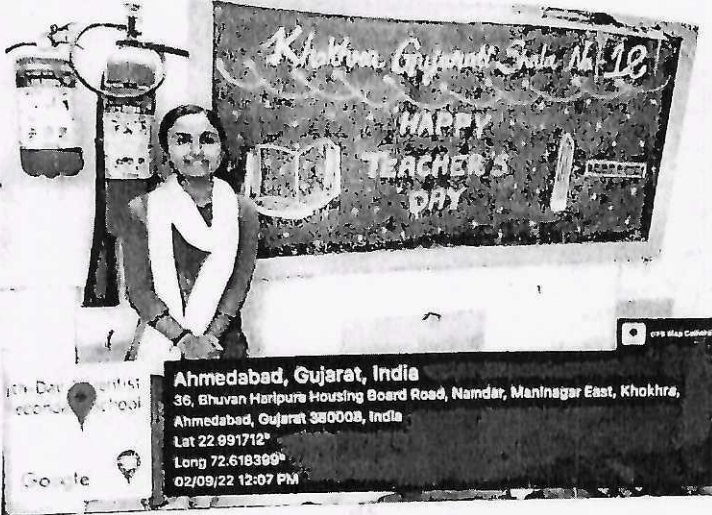 Khokhra Gujarati Shala No 12
HAPPY
TEACHER'S
DAY
GPS Map Camera
Ahmedabad, Gujarat, India
36, Bhuvan Haripura Housing Board Road, Namdar, Maninagar East, Khokhra,
Ahmedabad, Gujarat 380008, India
Lat 22.991712°
Long 72.618399°
02/09/22 12:07 PM
Google